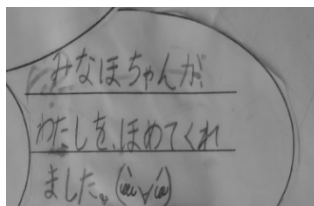 みなほちゃんが、
わたしを、ほめてくれ
ました。